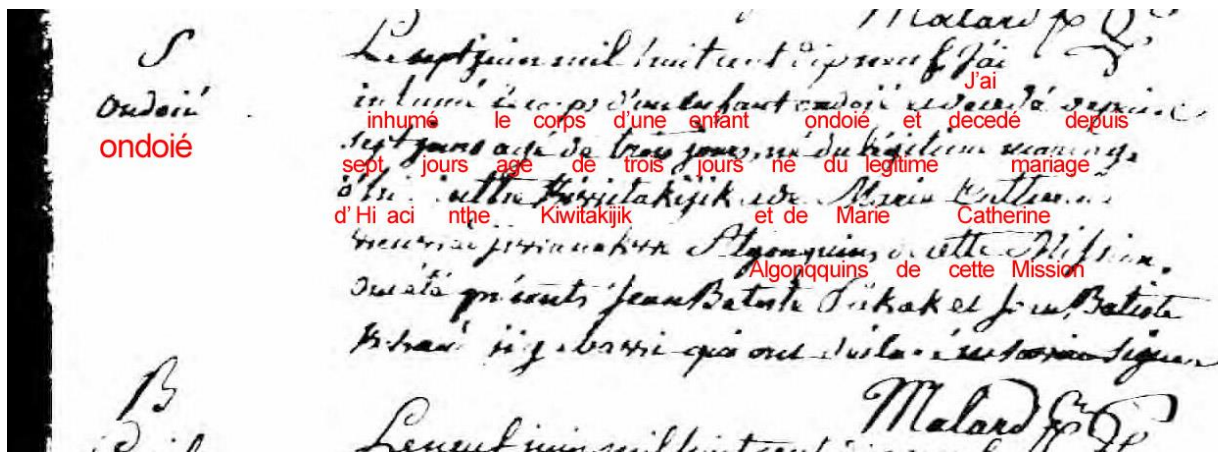 Malard
S
Le sept juin mil huit cent dix neuf J'ai
J'ai
ondoié
inhumé le corps d'un enfant ondoié et decedé depuis
inhumé le corps d'une enfant ondoié et decedé depuis
ondoié
sept jours agé de trois jours, né du légitime mariage
sept jours age de trois jours né du legitime mariage
d'hiacinthe Kiwitakijik et de Marie Catherine
d' Hi aci nthe Kiwitakijik et de Marie Catherine
Algonquins de cette Mission.
Algonqquins de cette Mission
ont été présents Jean Batiste et Jean Batiste
qui ont déclaré ne savoir signer
B
Malard
Le neuf juin mil huit cent